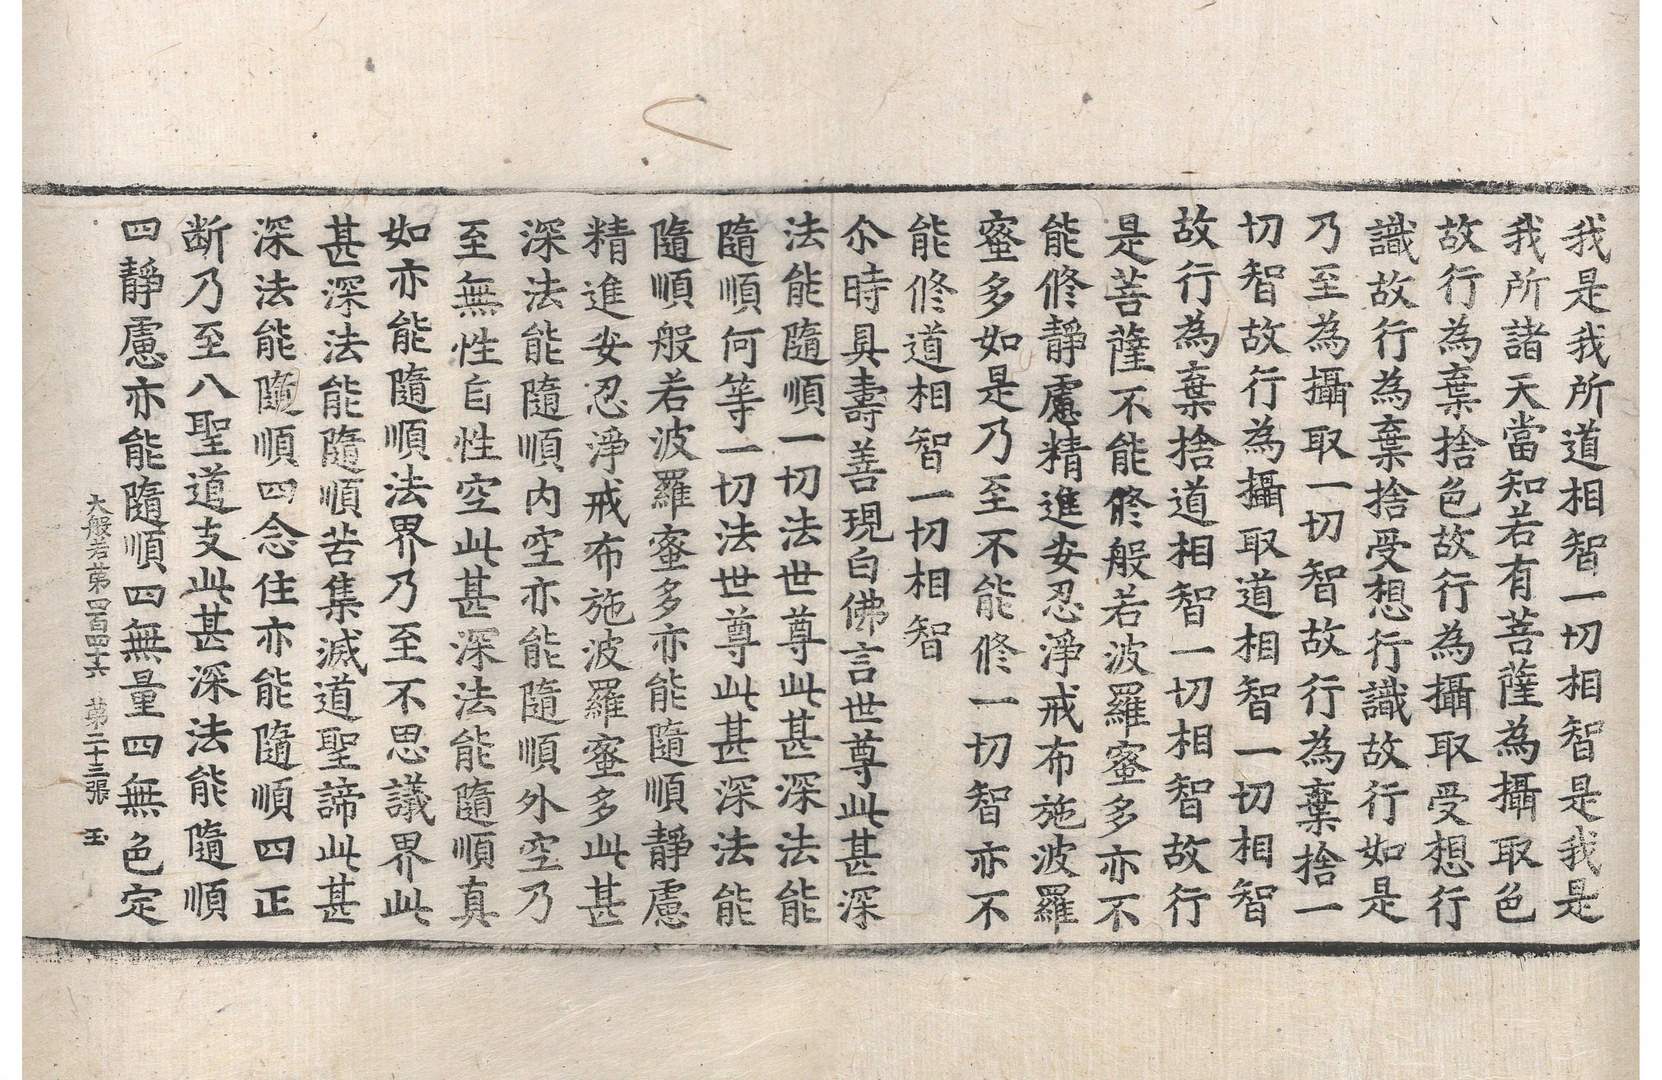 我是我所道相智一切相智是我是
我所諸天當知若有菩薩為攝取色
故行為棄捨色故行為攝取受想行
識故行為棄捨受想行識故行如是
乃至為攝取一切智故行為棄捨一
切智故行為攝取道相智一切相智
故行為棄捨道相智一切相智故行
是菩薩不能修般若波羅蜜多亦不
能修靜慮精進安忍淨戒布施波羅
蜜多如是乃至不能修一切智亦不
能修道相智一切相智
尒時具壽善現白佛言世尊此甚深
法能隨順一切法世尊此甚深法能
隨順何等一切法世尊此甚深法能
隨順般若波羅蜜多亦能隨順靜慮
精進安忍淨戒布施波羅蜜多此甚
深法能隨順內空亦能隨順外空乃
至無性自性空此甚深法能隨順真
如亦能隨順法界乃至不思議界此
甚深法能隨順苦集滅道聖諦此甚
深法能隨順四念住亦能隨順四正
断乃至八聖道支此甚深法能隨順
四靜慮亦能隨順四無量四無色定
大般若第四百四十六 第二十三張 玉